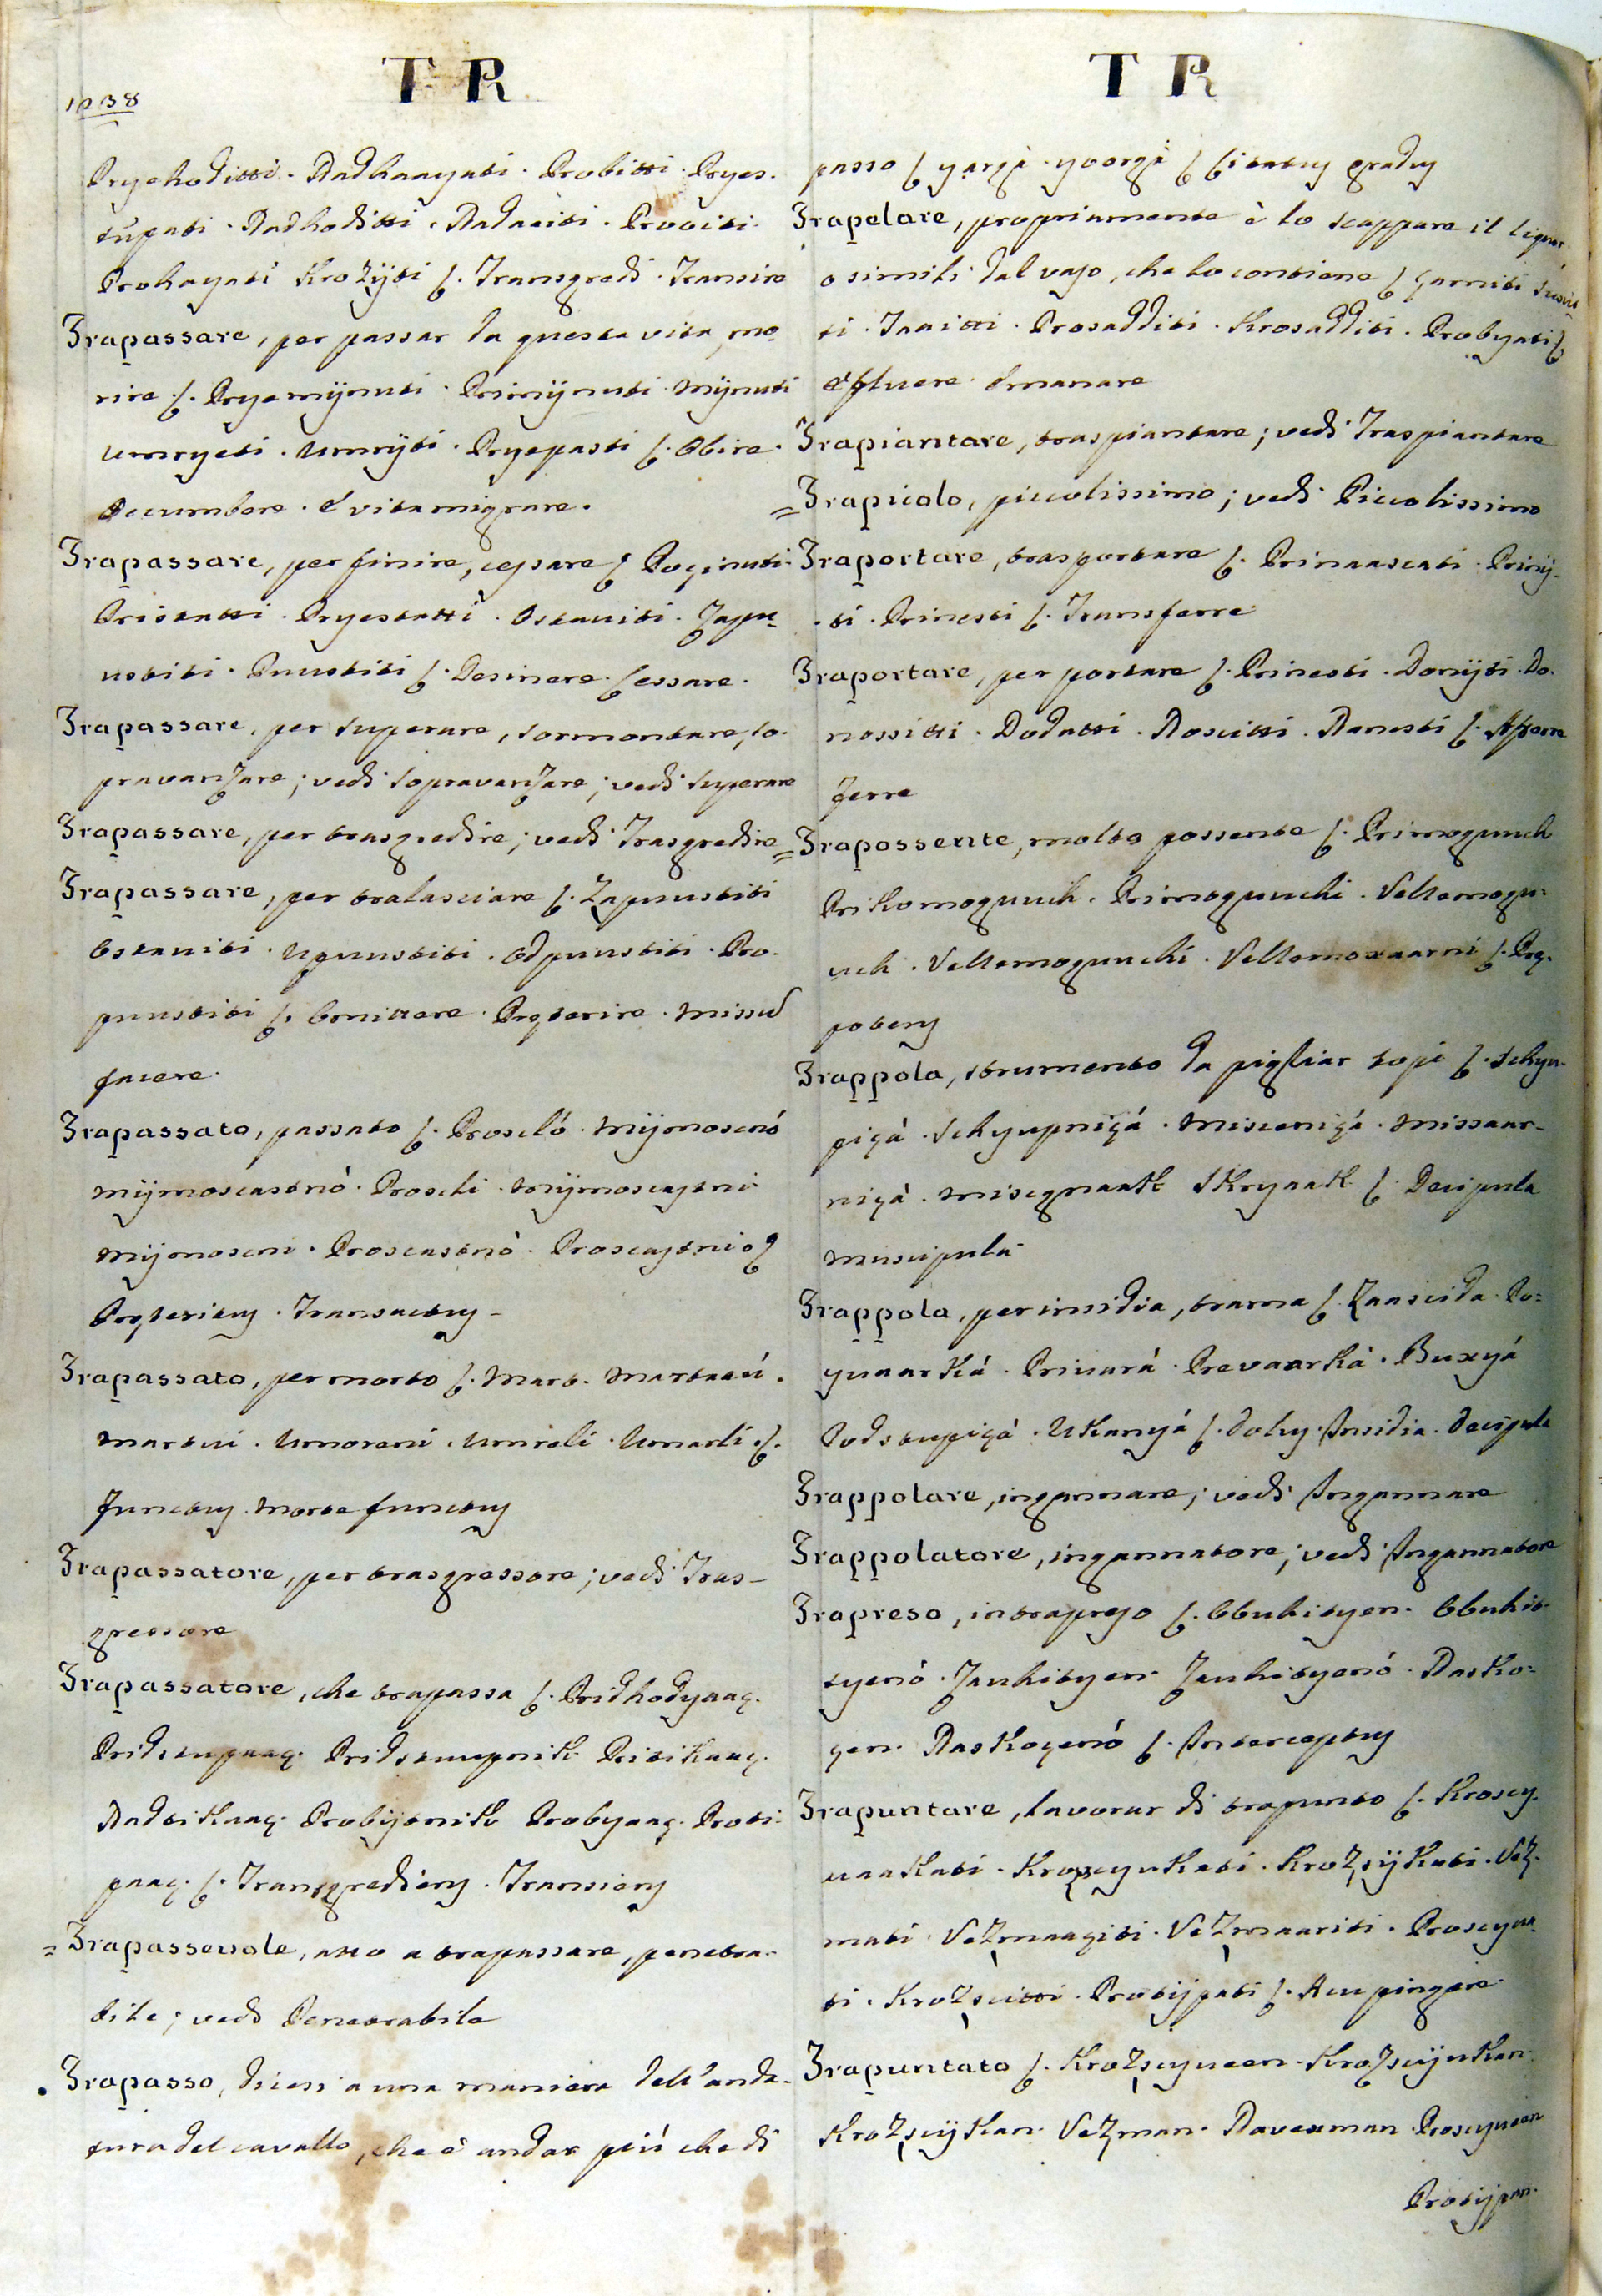 1238
T R
Pryehoditti. Nadhaayati. Probitti. Pryes-
tupati. Nadhoditti. Nadaciti. Prociti.
Prohayati Krožijti ſ. Transgredi. Transire
Trapassare, per passar da questa vita, mo-
rire ſ. Pryemijnuti. Primijnuti. Mijnuti
Umryeti. Umrijti. Pryepasti ſ. Obire.
Occumbere. E vita migrare.
Trapassare, per finire, cessare ſ. Poginuti.
Pristatti. Pryestatti. Ostaviti. Zapu-
ustiti. Puustiti ſ. Desinere. Cessare.
Trapassare, per superare, sormontare, so-
pravanzare; vedi Sopravanzare; vedi Superare
Trapassare, per trasgredire; vedi Trasgredire
Trapassare, per tralasciare ſ. Zapuustiti
Ostaviti. Upuustiti. Odpuustiti. Pro-
puustiti ſ. Omittere. Pręterire. Missu
facere.
Trapassato, passato ſ. Prosció. Mijmosció
Mijmosċastnó. Proscli. Mijmoscastni
Mijmoscni. Proscastnó. Proscastni ſ
Pręteritus. Transactus
Trapassato, per morto ſ. Mart. Martaací.
Martvi. Umoreni. Umreli. Umarli ſ.
Functus. Morte functus
Trapassatore, per trasgressore; vedi Tras-
gressore
Trapassatore, che trapassa ſ. Pridhodyaaç.
Pridstupaaç. Pridstuupnik Pritikaaç.
Nadtikaaç. Probijtnik Probyaaç. Proti-
paaç. ſ. Transgrediens. Transiens
= Trapassevole, atto a trapassare, penetra-
bile; vedi Penetrabile
Trapasso, dicesi a una maniera dell'anda-
tura del cavallo, che è andar più che di
T R
passo ſ yargà. yoorgà ſ Citatus gradus
Trapelare, propriamente è lo scappare il liquor
o simili dal vaso, che lo contiene ſ
ti. Prosadditi. Krosadditi. Probyati ſ
Effluere. Emanare
Trapiantare, traspiantare; vedi Traspiantare
= Trapicolo, piccolissimo; vedi Piccolissimo
Traportare, trasportare ſ. Prinaascati. Prinij-
ti. Prinesti ſ. Transferre
Traportare, per portare ſ. Prinesti. Donijti. Do-
nossitti. Dodatti. Noscitti. Nanesti ſ. Afferre
Ferre
= Trapossente, molto possente ſ. Primoguuch
Prikomoguuch. Primoguuchi. Vellemogu-
uch. Vellemoguuchi. Vellemoxaarni ſ. Prę-
potens
Trappola, strumento da pigliar topi ſ. Schyu-
piçá. Schyupniçá. Misceniçá. Missaar-
niçá. Miscgnaak Skrynaak ſ. Decipula
Muscipula
Trappola, per insidia, trama ſ. Zaascida. Po-
gnaarká. Privará. Prevaarká. Buxyá
Podstupiçá. Ukanyá ſ. Dolus. Insidia. Decipula
Trappolare, ingannare; vedi Ingannare
Trappolatore, ingannatore; vedi Ingannatore
Trapreso, intrapreso ſ. Obuhityen. Obuhit-
tyenó. Zauhityen. Zauhityenó. Rasko-
yen. Raskoyenó ſ. Interceptus
Trapuntare, lavorar di trapunto ſ. Kroscy-
vaakati. Kroscyukati. Krožsijkati. Vež-
mati. Vežmaaçiti. Vežmaariti. Proscyva-
ti. Krožscitti. Protijpati ſ. Acu pingere
Trapuntato ſ. Krožscyveen. Krožscijukan.
Krožscijkan. Vežman. Navexman. Proscyveen
Protijpan.